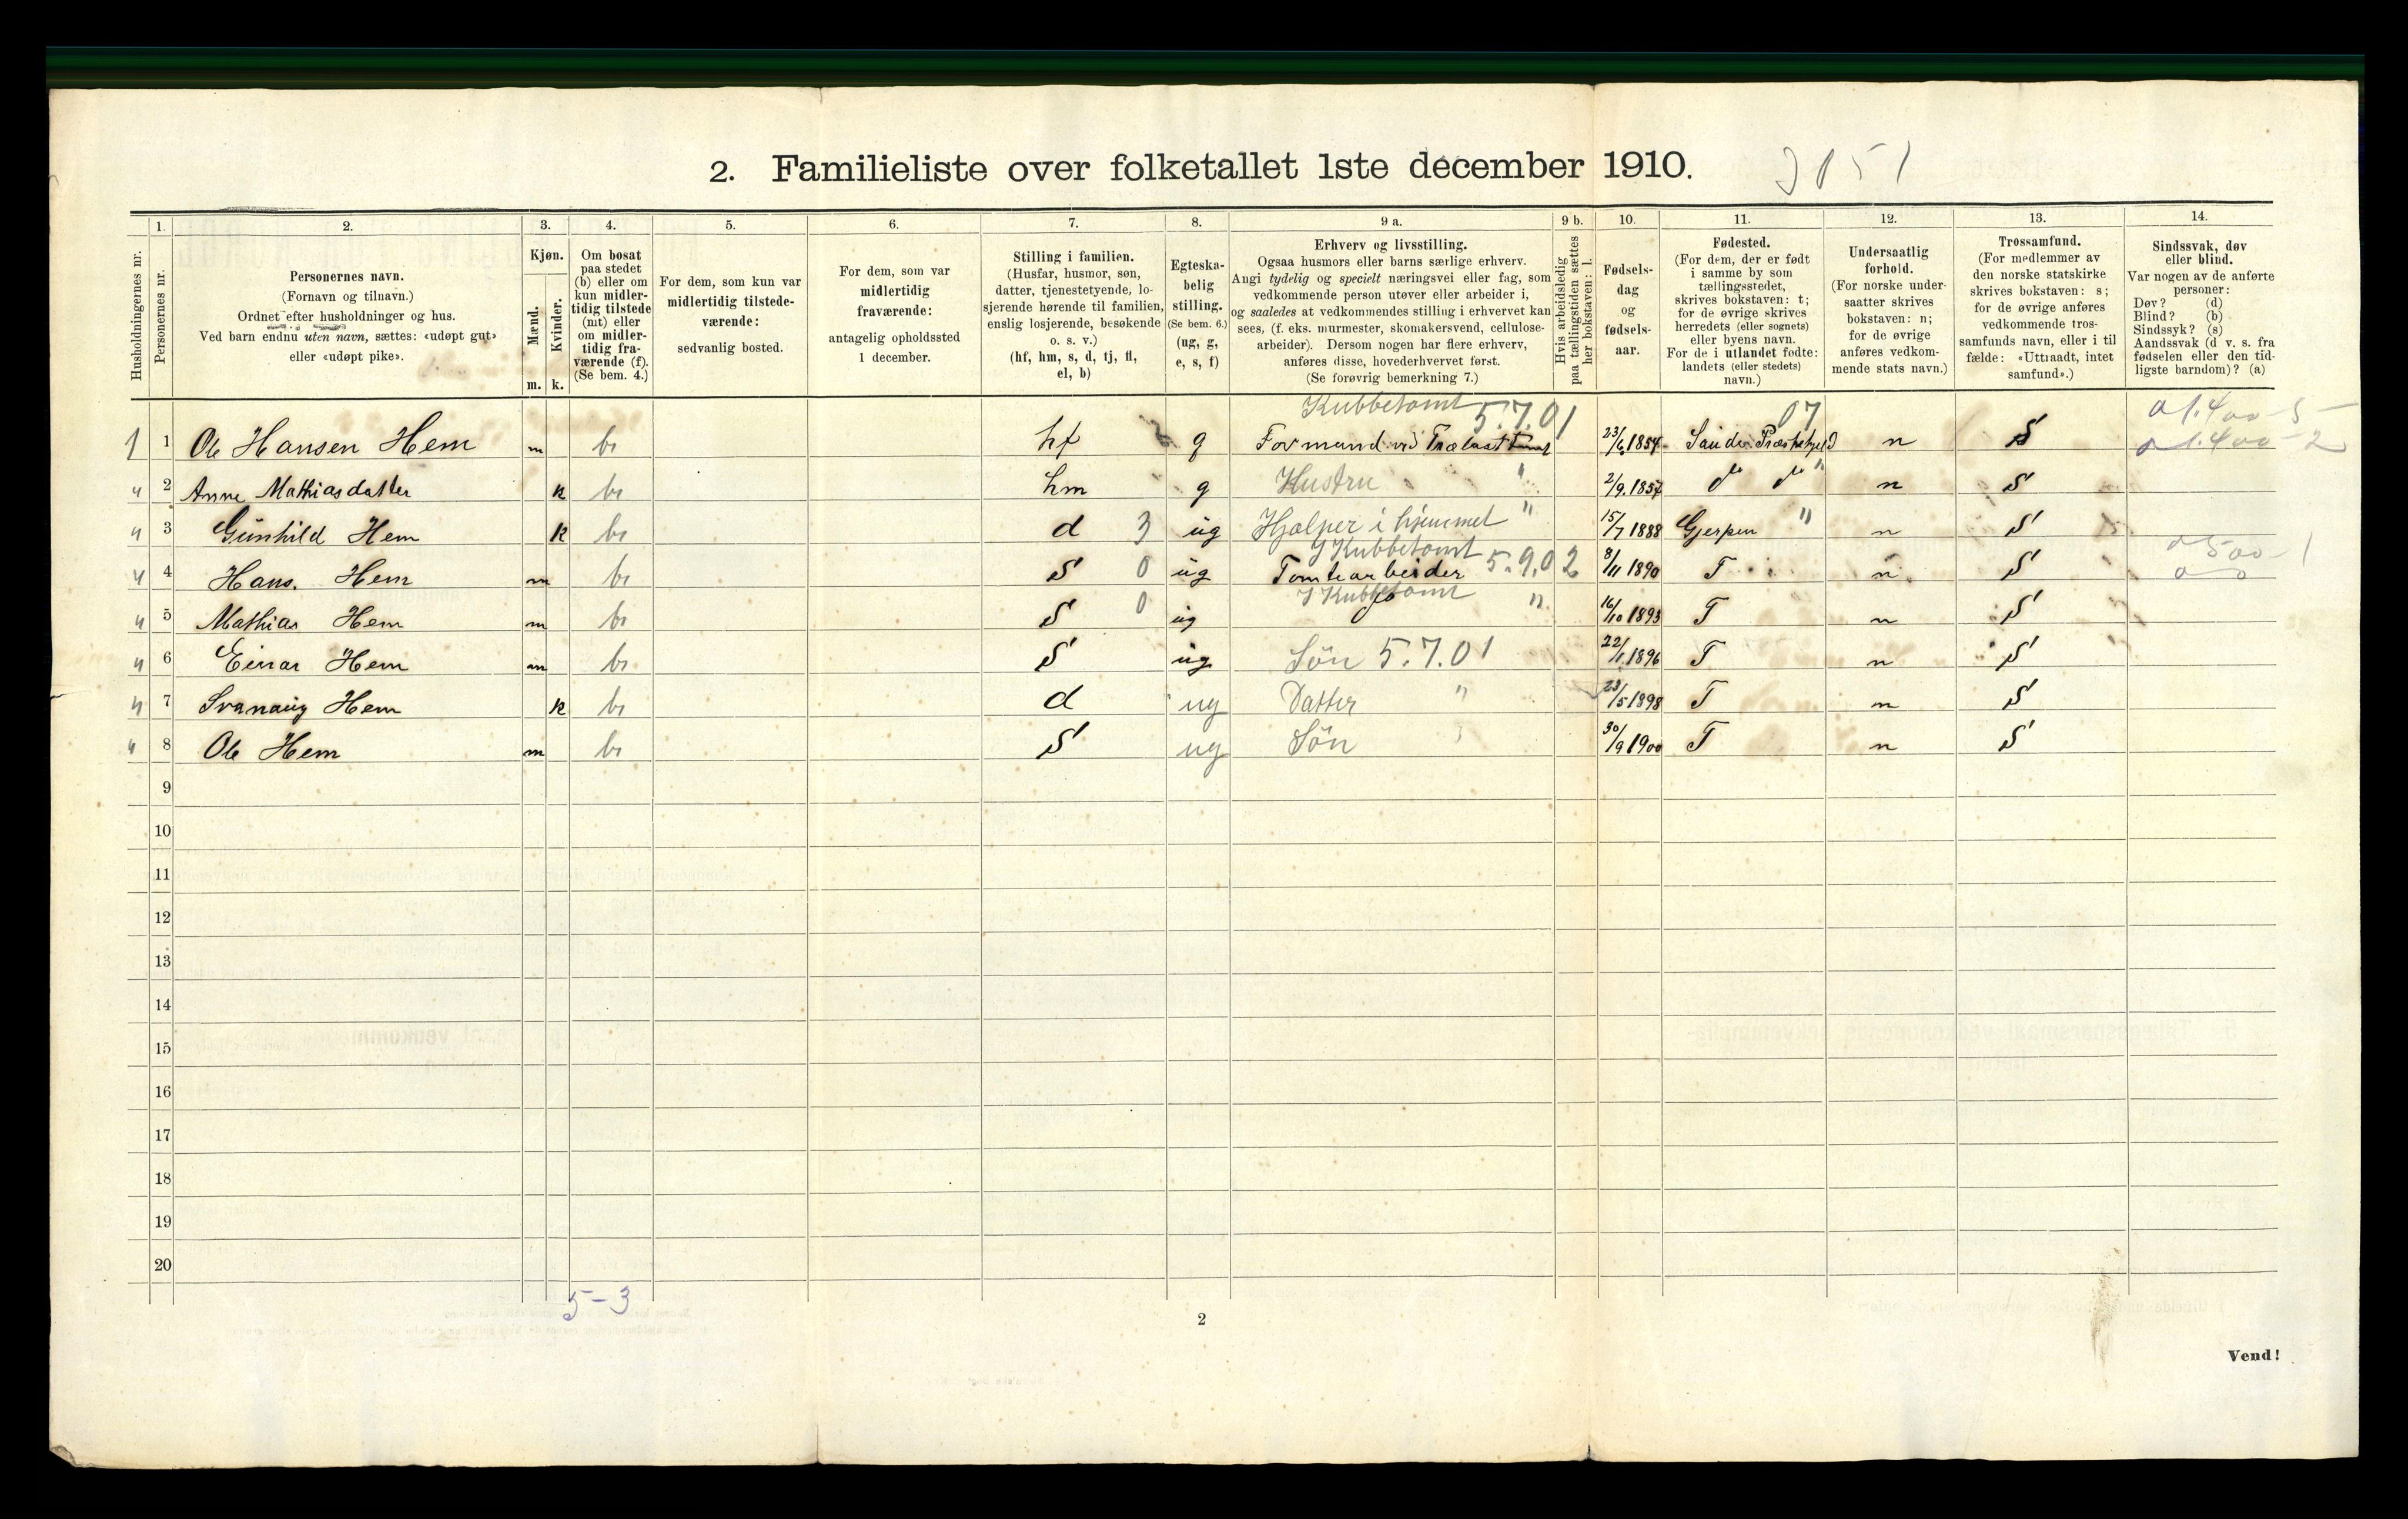 2. Familieliste over folketallet 1ste december 1910.
3151
1. 2. 3. 4. 5. 6. 7. 8. 9 a. 9 b. 10. 11. 12. 13. 14.
Husholdningernes nr.
Personernes nr.
Personernes navn.
(Fornavn og tilnavn.)
Ordnet efter husholdninger og hus.
Ved barn endnu uten navn, sættes: «udøpt gut»
eller «udøpt pike».
Kjøn.
Mænd.
Kvinder.
m. k.
Om bosat
paa stedet
(b) eller om
kun midler-
tidig tilstede
(mt) eller
om midler-
tidig fra-
værende (f).
(Se bem. 4.)
For dem, som kun var
midlertidig tilstede-
værende:
sedvanlig bosted.
For dem, som var
midlertidig
fraværende:
antagelig opholdssted
1 december.
Stilling i familien.
(Husfar, husmor, søn,
datter, tjenestetyende, lo-
sjerende hørende til familien,
enslig losjerende, besøkende
o. s. v.)
(hf, hm, s, d, tj, fl,
el, b)
Egteska-
belig
stilling.
(Se bem. 6.)
(ug, g,
e, s, f)
Erhverv og livsstilling.
Ogsaa husmors eller barns særlige erhverv.
Angi tydelig og specielt næringsvei eller fag, som
vedkommende person utøver eller arbeider i,
og saaledes at vedkommendes stilling i erhvervet kan
sees, (f. eks. murmester, skomakersvend, cellulose-
arbeider). Dersom nogen har flere erhverv,
anføres disse, hovederhvervet først.
(Se forøvrig bemerkning 7.)
Hvis arbeidsledig
paa tællingstiden sættes
her bokstaven: l.
Fødsels-
dag
og
fødsels-
aar.
Fødested.
(For dem, der er født
i samme by som
tællingsstedet,
skrives bokstaven: t;
for de øvrige skrives
herredets (eller sognets)
eller byens navn.
For de i utlandet fødte:
landets (eller stedets)
navn.)
Undersaatlig
forhold.
(For norske under-
saatter skrives
bokstaven: n;
for de øvrige
anføres vedkom-
mende stats navn.)
Trossamfund.
(For medlemmer av
den norske statskirke
skrives bokstaven: s;
for de øvrige anføres
vedkommende tros-
samfunds navn, eller i til-
fælde: «Uttraadt, intet
samfund».)
Sindssvak, døv
eller blind.
Var nogen av de anførte
personer:
Døv? (d)
Blind? (b)
Sindssyk? (s)
Aandssvak (d v. s. fra
fødselen eller den tid-
ligste barndom)? (a)
Kubbetomt 5.7.01 07 01.400-5
1 1 Ole Hansen Hem m b hf g Formand ved Trælasttomt 23/6 1854 Saude Præstegjeld n S 01.400-2
" 2 Anne Mathiasdatter k b hm g Hustru " 2/9.1857 do do " n S
" 3 Gunhild Hem k b d 3 ug Hjælper i hjemmet " 15/7 1888 Gjerpen " n S
I Kubbetomt 0500-1
" 4 Hans. Hem m b S 0 ug Tomtearbeider 5.9.02 8/11 1890 T n S
I Kubbetomt
" 5 Mathias Hem m b S 0 ug do " 16/10 1893 T n S
" 6 Einar Hem m b S ug Søn 5.7.01 22/1.1896 T n S
" 7 Svanaug Hem k b d ug Datter " 23/5 1898 T n S
" 8 Ole Hem m b S ug Søn 30/9 1900 T n S
9
10
11
12
13
14
15
16
17
18
19
20
5-3
2
Vend!